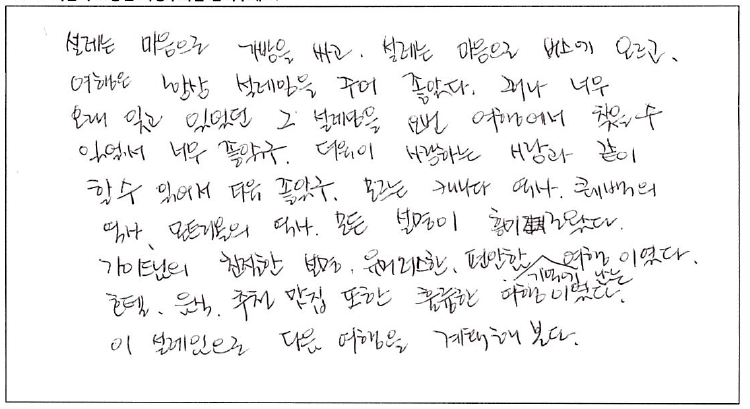 설레는 마음으로 가방을 싸고, 설레는 마음으로 버스에 오르고,
여행은 항상 설레임을 주어 좋았다. 꺼나 너무
오래 잊고 있었던 그 설레임을 요번 여행에서 찾을 수
있었서 너무 좋았구. 더욱이 사랑하는 사람과 같이
할 수 있어서 더욱 좋았구. 모르는 캐나다 역사. 퀘벡의
역사, 몬트리올의 역사. 모든 설명이 흥미로왔다.
가이드님의 친절한 설명, 유머러스한, 편안한 여행이였다.
기억에 남는
호텔, 음식, 추천 맛집 또한 훌륭한 여행이였다.
이 설레임으로 다음 여행을 계획해 본다.